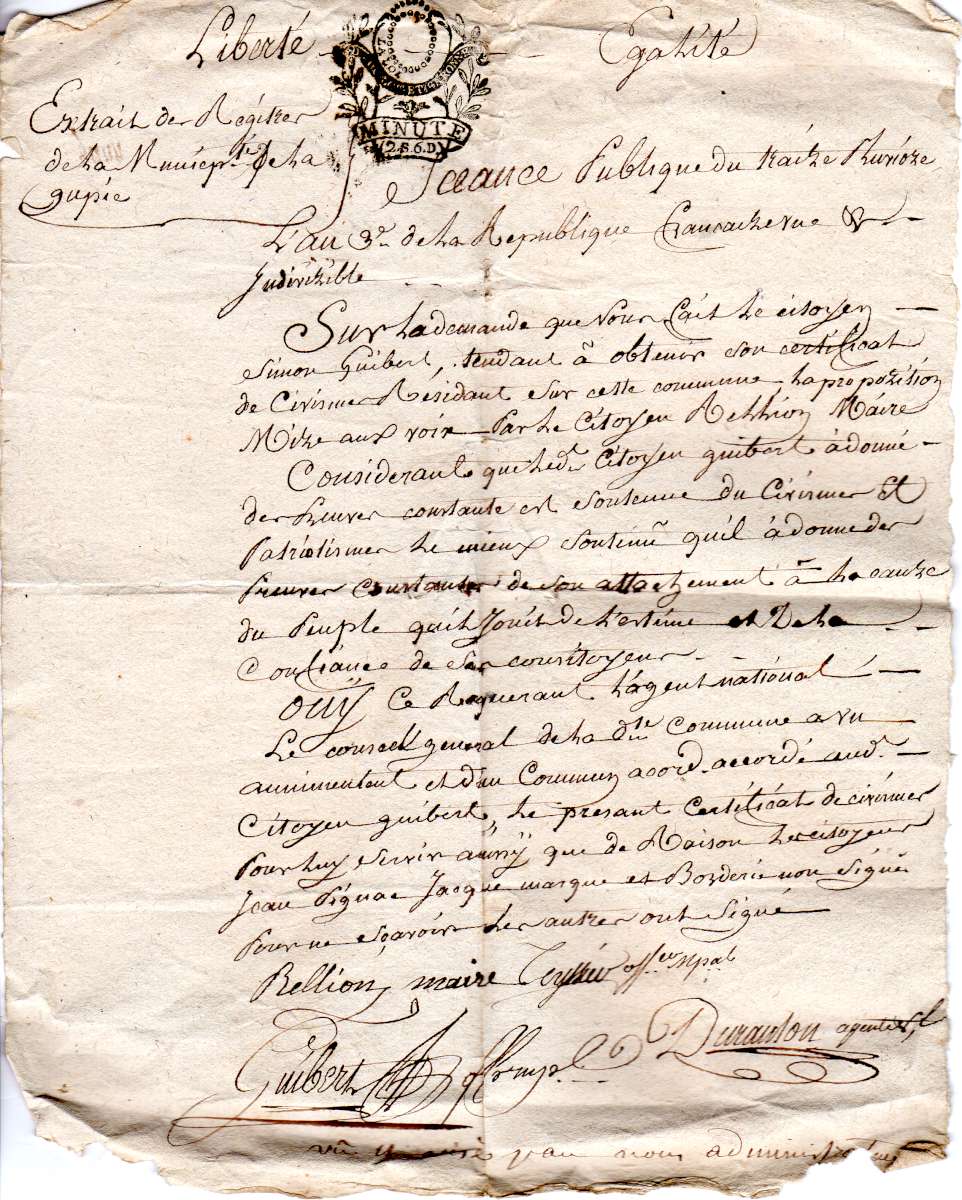 Liberté — Egalité
MINUTE
(2.S.6.D)
Extrait des Régitres
de la Munisepte de la
gupie
Seance Publique du traize Pluvioze
L'an 3e de la République francaize une &
Indivizible
Sur la demande que nous fait le citoyen
Simon Guibert, tendant à obtenir son certificat
de Civismes Résidant sur cette commune, la propozition
Mize aux voix Par le Citoyen Rellion Maire
Considerant que led. Citoyen guibert à donné
des Preuves constante est soutenue du Civismes Et
Patriotismes le mieux soutenu quil à donne des
Preuves constantes de son attachement à la cauze
du Peuple qu'il Jouit de l'estime et de la
Confiance de ses consitoyens
Ouÿ Ce Requerant l'agent national
Le conseil general de la dte Commune a vu
animement et d'un Commun acord accordé aud.
Citoyen guibert, le présant Certificat de civismes
Pour luy servir ainsÿ que de Raison les citoyens
Jean Pignac Jacque marque et Borderie non Signés
Pour ne sçavoir les autres ont Signé
Rellion, maire Teyssié offer mpal
Guibert off. mpl. Duranton agent nal
vu par nous administrateurs